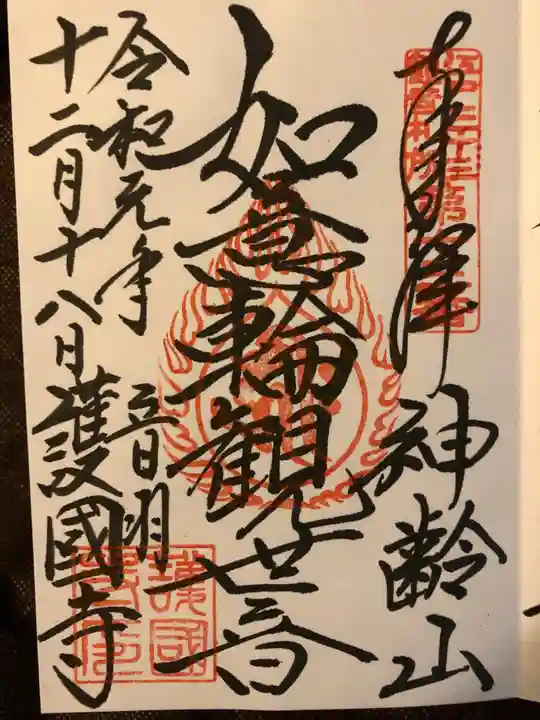 奉拝
神齢山
如意輪観世音
令和元年
十二月十八日
音羽
護國寺
護國